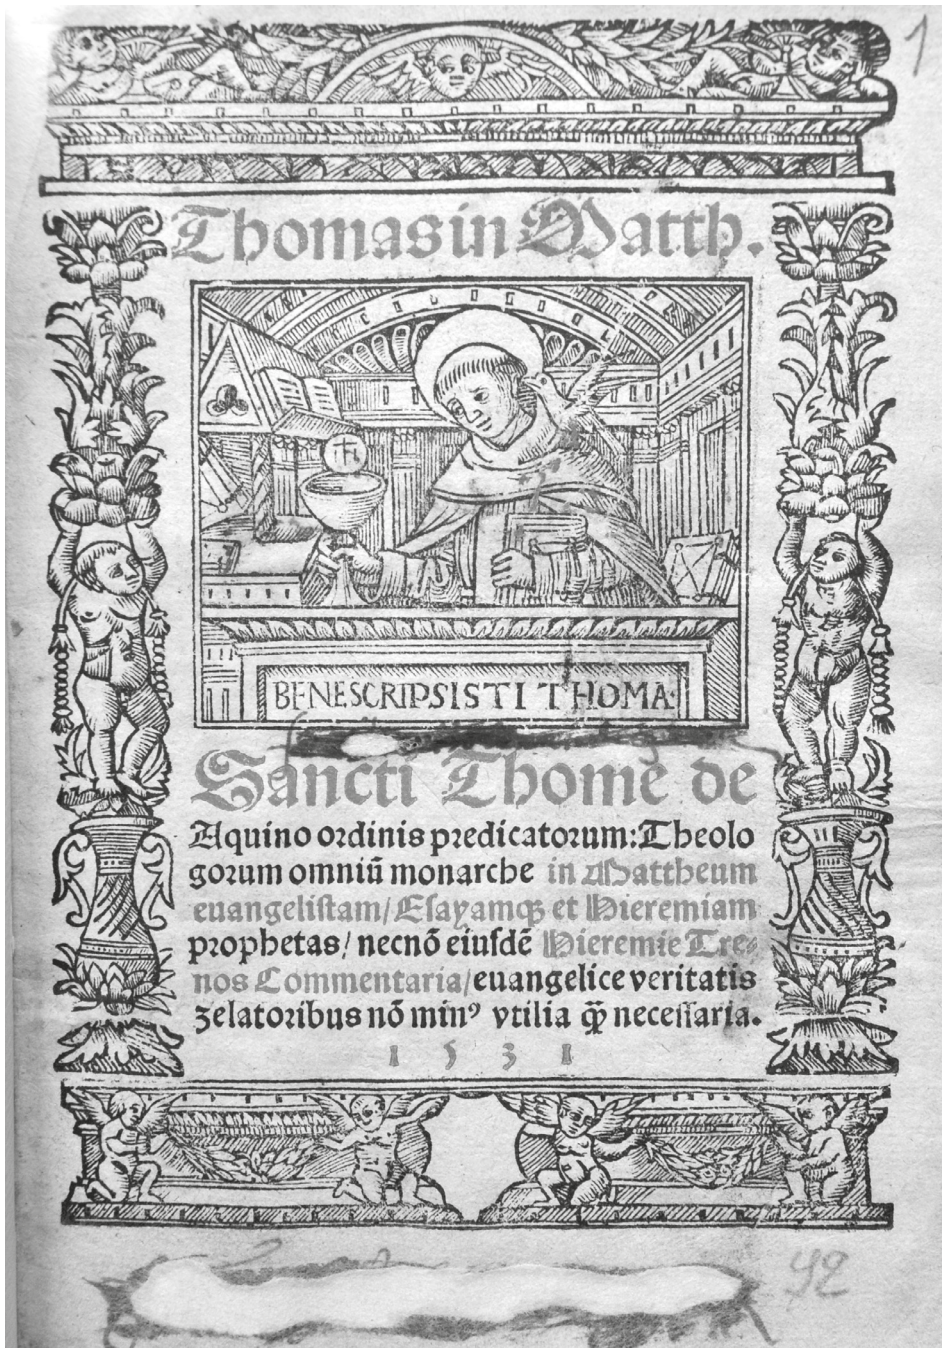 1
Thomas in Matth.
BENESCRIPSISTI THOMA.
Sancti Thome de
Aquino ordinis predicatorum: Theolo
gorum omniū monarche in Mattheum
euangelistam/ Esayamqꝫ et Hieremiam
prophetas/ necnō eiusdē Hieremie Tre-
nos Commentaria/ euangelice veritatis
zelatoribus nō minꝰ vtilia qꝫ̄ necessaria.
1 5 3 1
92